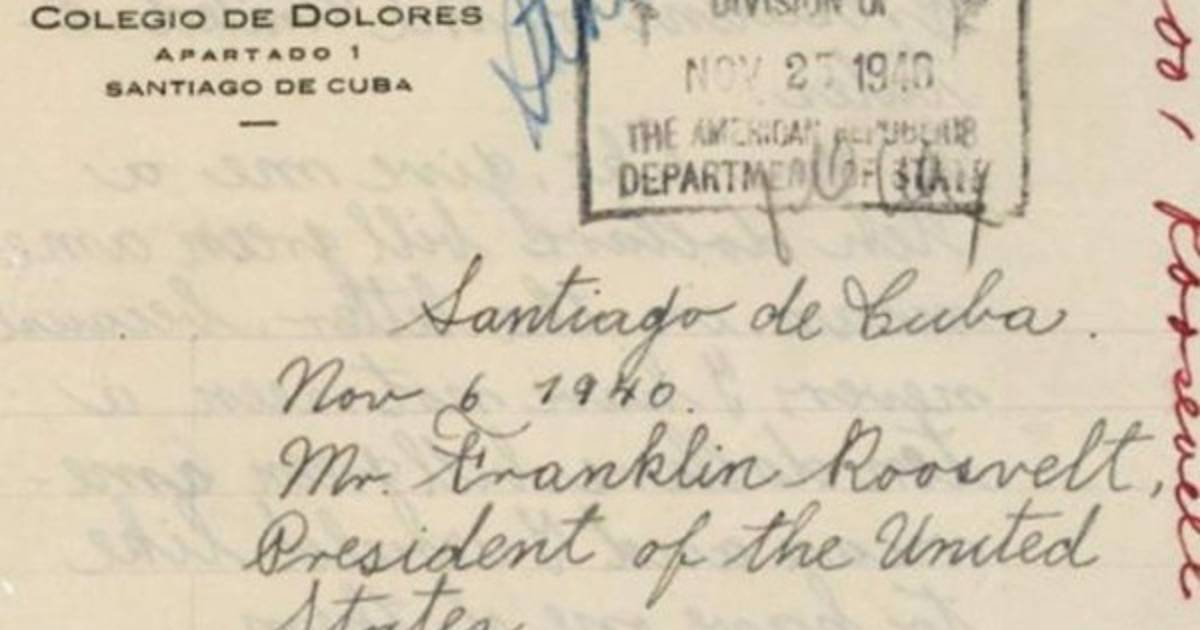 COLEGIO DE DOLORES
APARTADO 1
SANTIAGO DE CUBA
DIVISION OF
NOV 27 1940
THE AMERICAN REPUBLICS
DEPARTMENT OF STATE
Santiago de Cuba.
Nov 6 1940.
Mr. Franklin Roosvelt,
President of the United
States.